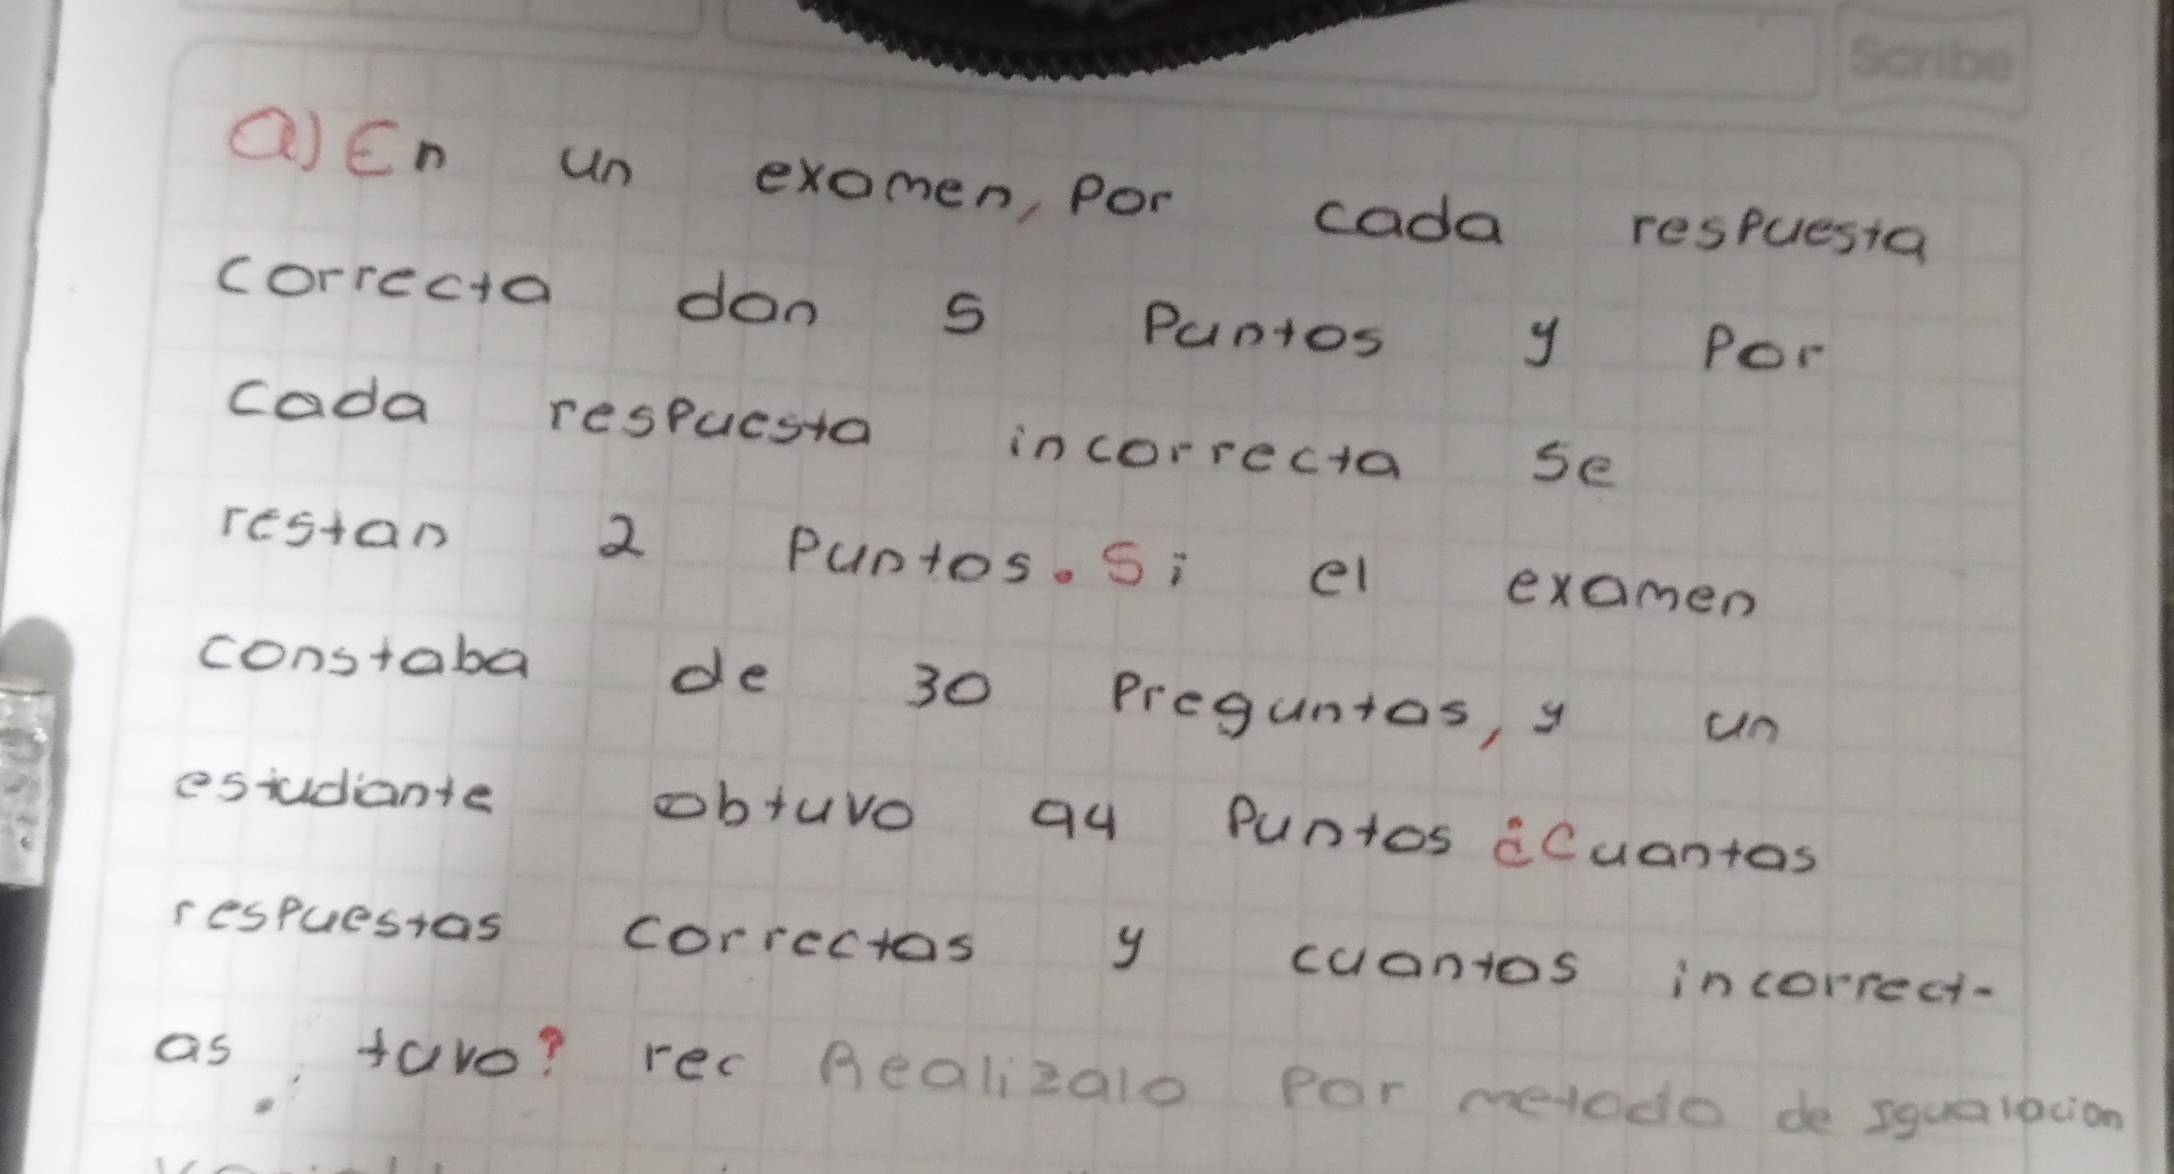 Scribe
a) En un examen, Por cada respuesta
correcta dan 5 Puntos y Por
cada respuesta incorrecta se
restan 2 Puntos. Si el examen
constaba de 30 Preguntas, y un
estudiante obtuvo 94 Puntos ¿Cuantas
respuestas correctas y cuantas incorrect-
as tuvo? rec Realizalo Por metodo de Igualacion